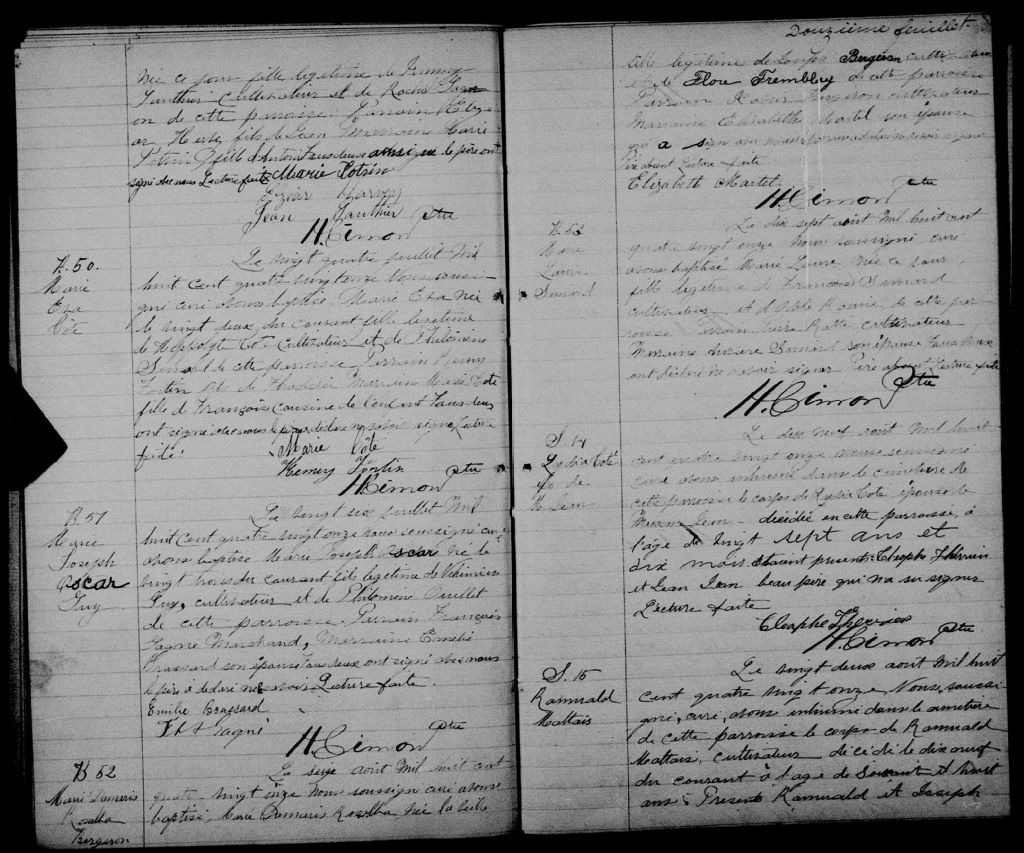 née ce jour fille legitime de
Gauthier cultivateur et de
on de cette paroisse. Parrain
ar Harvey fils de Jean Marraine Marie
Potvin fille d'Antoine tous deux ainsi que le père ont
signé avec nous Lecture faite Marie Potvin
Harvey
Jean Gauthier
H. Cimon Ptre
B. 50.
Marie
Eva
Côté
Le vingt quatre juillet Mil
huit cent quatre vingt onze Nous sous-
signé curé avons baptisé Marie Eva née
le vingt deux du courant fille legitime
de Hippolyte Coté Cultivateur et de Philomène
Simard de cette paroisse Parrain
Fortin fils de Thaddée Marraine Marie Cote
fille de François cousine de l'enfant tous deux
ont signé avec nous le père déclare ne savoir signer Lecture
faite.
Marie Côté
Fortin
H. Cimon Ptre
B 51
Marie
Joseph
Oscar
Guy
Le vingt six juillet Mil
huit cent quatre vingt onze nous soussigné curé
avons baptisé Marie Joseph Oscar né le
vingt trois du courant fils legitime de
Guy, cultivateur et de Philomène Ouellet
de cette parroisse. Parrain François
Gagné Marchand, Marraine Emelie
Brassard son épouse tous deux ont signé avec nous
le père a déclaré ne savoir. Lecture faite.
Emilie Brassard
Gagné
H. Cimon Ptre
B 52
Marie Damaris
Rosalba
Bergeron
Le seize août Mil huit cent
quatre vingt onze Nous soussigné curé avons
baptisé, Marie Damaris Rosalba née la veille
Douzième feuillet.
fille légitime de Joseph Bergeron cultivateur
et de Flore Tremblay de cette parroisse
Parrain cultivateur
Marraine Elisabeth Martel son épouse
qui a signé avec nous
père absent Lecture faite
Elizabeth Martel
H. Cimon Ptre
B. 53
Marie
Louise
Simard
Le dix sept août Mil huit cent
quatre vingt onze Nous soussigné curé
avons baptisé Marie Louise née ce jour
fille legitime de François Simard
cultivateur et de cette par-
roisse Parrain Pierre Ratte cultivateur
Marraine Simard son épouse tous deux
ont déclaré ne savoir signer Père absent Lecture faite
H. Cimon Ptre
S. 14
Lydia Coté
ép de
M. Jean
Le dix neuf août Mil huit
cent quatre vingt onze nous soussigné
curé avons inhumé dans le cimetière de
cette paroisse le corps de Lydia Coté épouse de
Jean décédée en cette parroisse, à
l'âge de vingt sept ans et
dix mois Etaient présents Cléophe Therrien
et Jean Jean beau père qui n'a su signer
Lecture faite
Cleophe Therrien
H. Cimon Ptre
S. 15
Ramuald
Mattais
Le vingt deux août Mil huit
cent quatre vingt onze, Nous, soussi-
gné, curé, avons inhumé dans le cimetière
de cette parroisse le corps de Ramuald
Mattais, cultivateur décédé le dix neuf
du courant à l'age de Soixant et huit
ans Présents Ramuald et Joseph